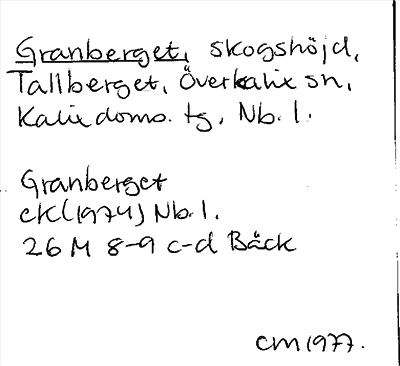 Granberget, skogshöjd,
Tallberget, Överkalix sn,
Kalix doms. tg, Nb. l.
Granberget
ek(1974) Nb. l.
26 M 8-9 c-d Bäck
CM 1977.